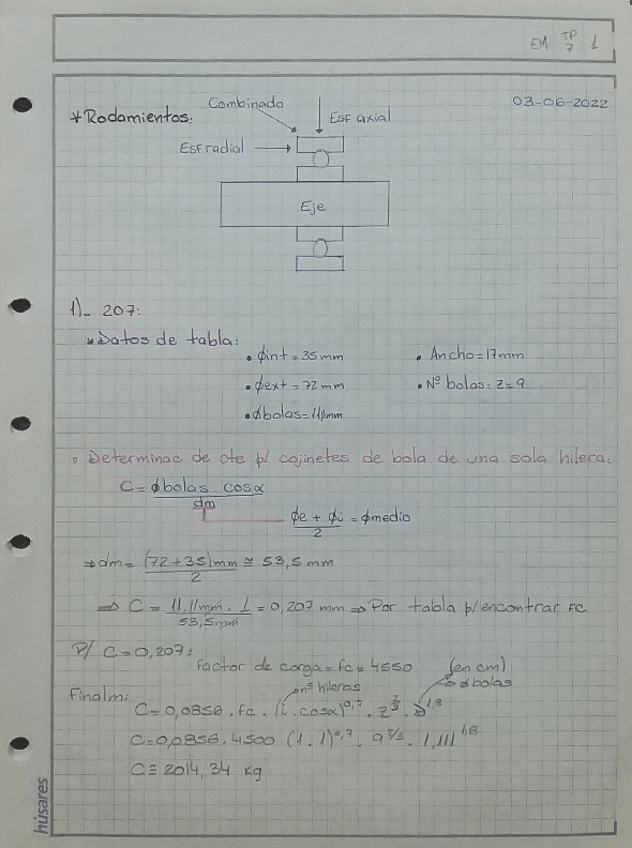 EM TP 7 1
03-06-2022
* Rodamientos:
Combinado
Esf axial
Esf radial
Eje
1)_ 207:
* Datos de tabla:
• ϕint = 35 mm • Ancho = 17 mm
• ϕext = 72 mm • Nº bolas: z = 9
• ϕbolas = 11,11mm
• Determinac de cte p/ cojinetes de bola de una sola hilera:
C = ϕbolas . cosα / dm
ϕe + ϕi / 2 = ϕmedio
⇒ dm = (72 + 35)mm / 2 ≅ 53,5 mm
⇒ C = 11,11mm . 1 / 53,5mm = 0,207 mm ⇒ Por tabla p/ encontrar fc
P/ C = 0,207:
Factor de carga = fc = 4550 (en cm)
Finalm: nº hileras ϕ bolas
C = 0,0856 . fc . (i . cosα)^0,7 . z^2/3 . δ^1,8
C = 0,0856 . 4500 (1 . 1)^0,7 . 9^2/3 . 1,111^1,8
C ≅ 2014,34 kg
húsares